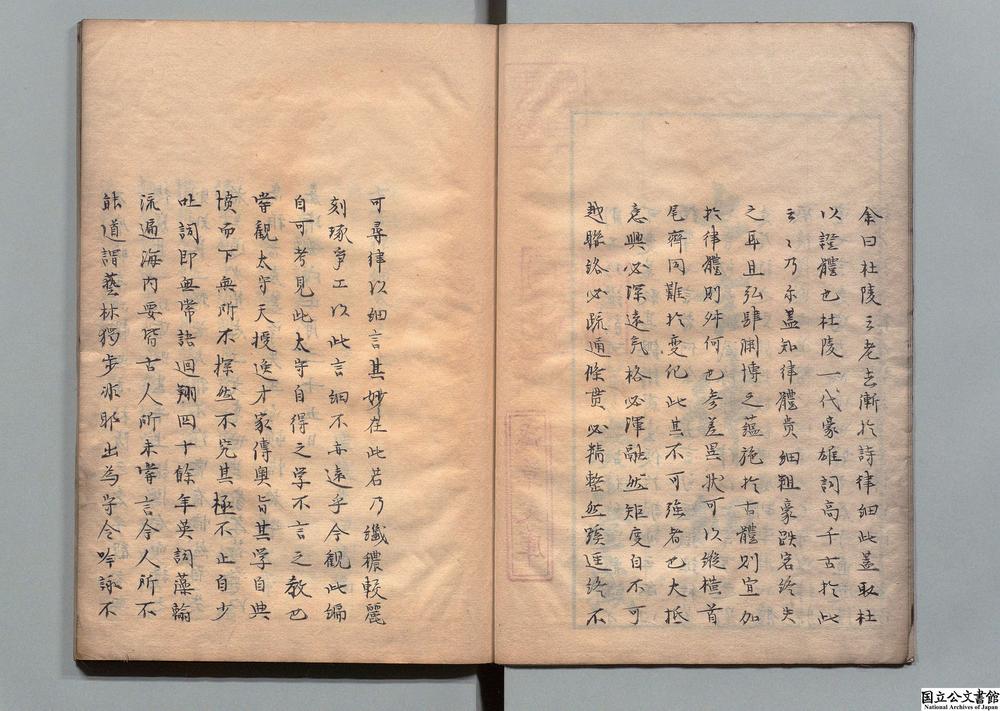 余曰杜陵云老去漸扵詩律細此盖取杜
以證體也杜陵一代豪雄詞髙千古扵此
云〻乃尔盖知律體貴細粗豪跌宕終失
之耳且弘肆閎博之蘊施扵古體則宜加
扵律體則舛何也参差異状可以縱横首
尾齊同難扵变化此其不可强者也大抵
意興必深遠気格必渾融然矩度自不可
越聯絡必疏通條貫必精整然蹊逕終不
可尋律以細言其妙在此若乃纖穠較麗
刻琢爭工以此言細不亦遠乎今觀此編
自可考見此太守自得之学不言之教也
嘗觀太守天授逸才家傳奥旨其学自典
墳而下無所不探然不究其極不止自少
吐詞即無常語迴翔四十餘年英詞藻翰
流遍海内要皆古人所未嘗言今人所不
能道謂藝林獨步非耶出為守令吟詠不
国立公文書館
National Archives of Japan